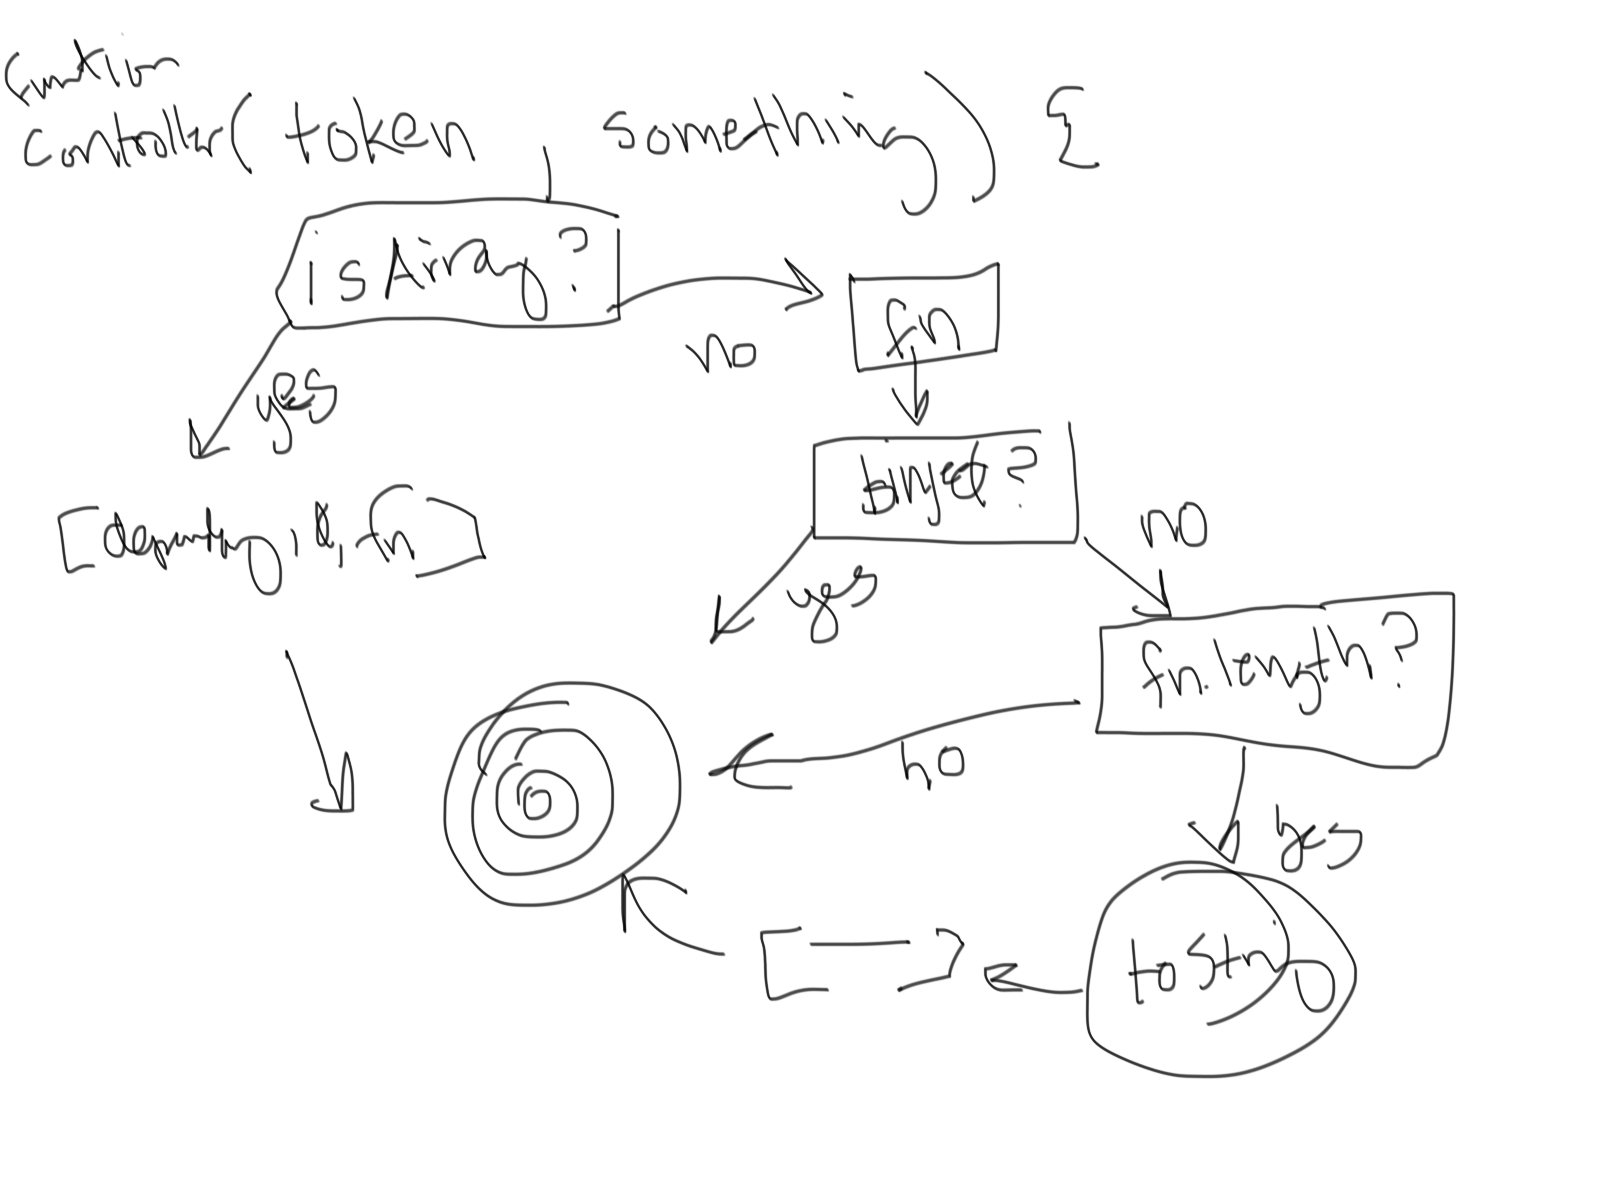 function
controller( token , something) {
isArray?
no
fn
yes
$inject?
no
[dependency, $, fn]
yes
fn.length?
no
yes
toString
[ — ]